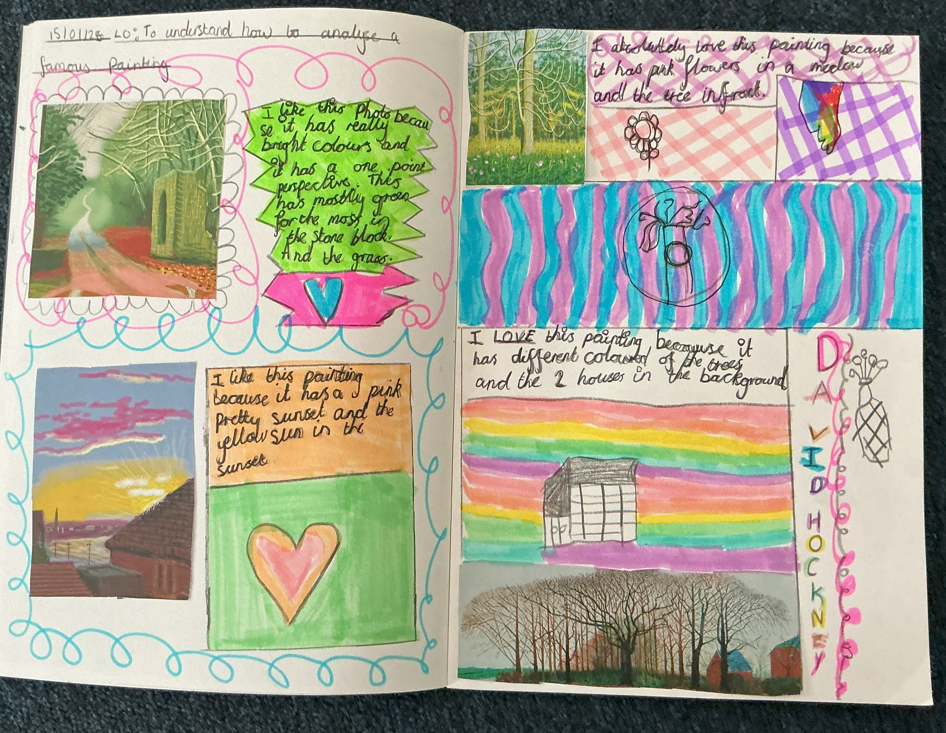 15/01/26 LO: To understand how to analyse a
famous Painting
I like this Photo becau
se it has really
bright colours and
it has a one point
perspective. This
has mostly green
for the most in
the stone block.
And the grass.
I like this painting
because it has a pink
pretty sunset and the
yellow sun in the
sunset.
I absolutely love this painting because
it has pink flowers in a medow
and the tree infront.
I LOVE this painting becawuse it
has different coloured of the trees
and the 2 houses in the background
DAVID HOCKNEY